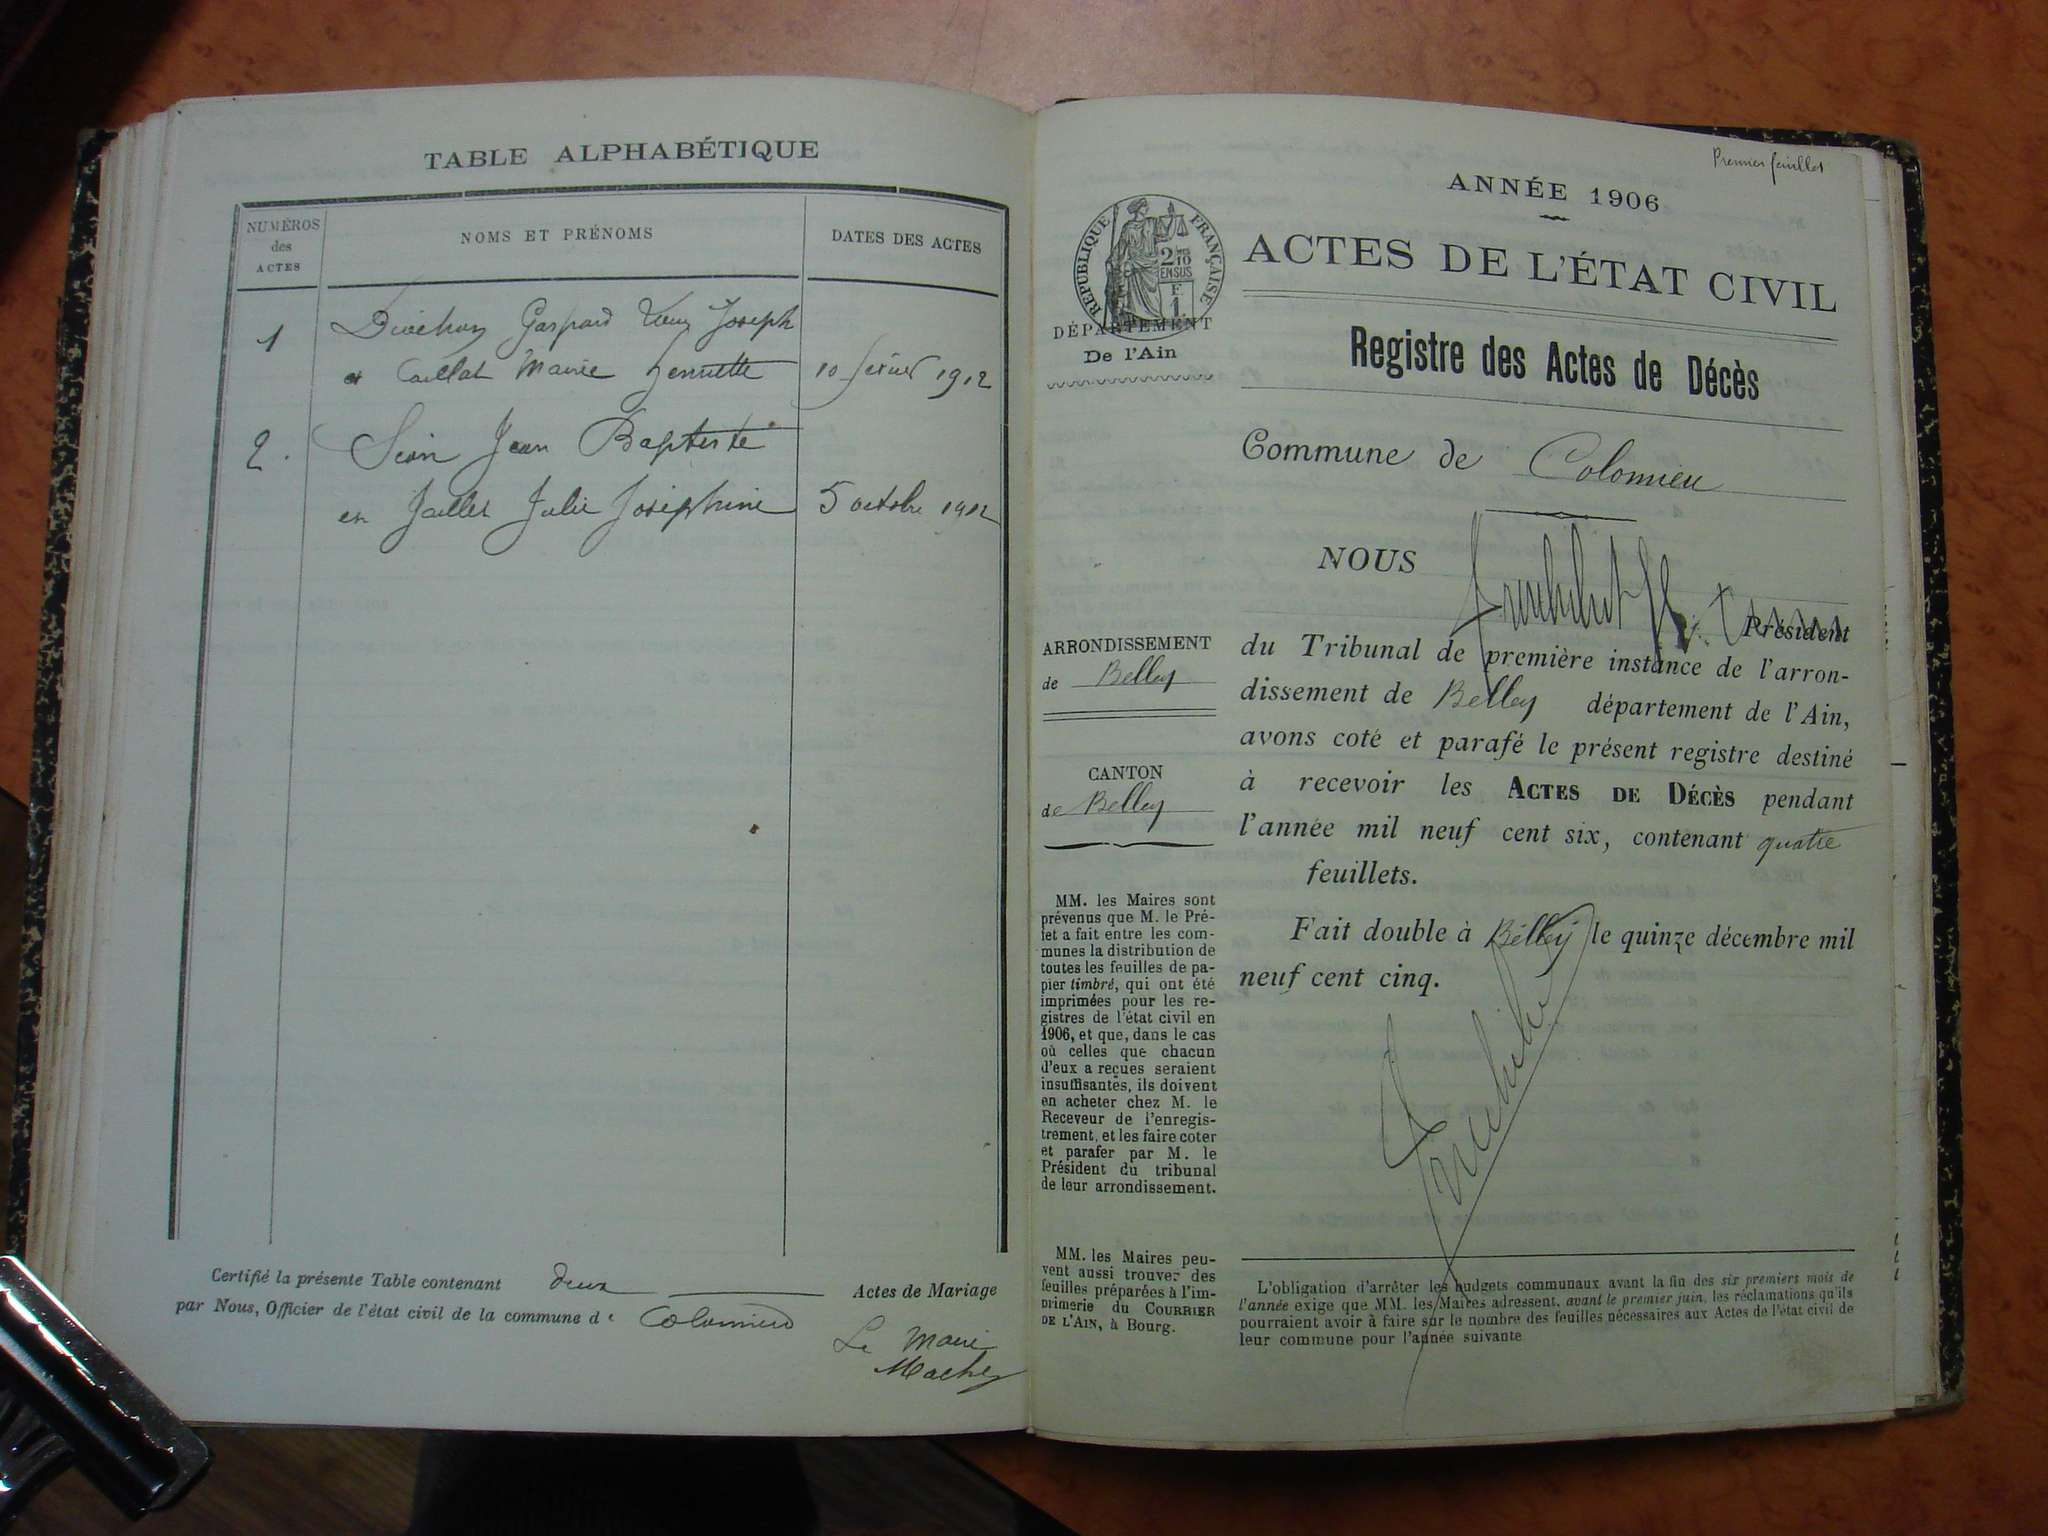 TABLE ALPHABÉTIQUE
NUMÉROS
des
ACTES
NOMS ET PRÉNOMS
DATES DES ACTES
1
Gaspard Joseph
et Caillat Marie
10 février 1912
2.
Jean Baptiste
et Jaillet Julie Joséphine
5 octobre 1912
Certifié la présente Table contenant deux Actes de Mariage
par Nous, Officier de l'état civil de la commune d Colomieu
Le Maire
Premier feuillet
ANNÉE 1906
ACTES DE L'ÉTAT CIVIL
RÉPUBLIQUE FRANÇAISE
EN SUS
F
1
DÉPARTEMENT
De l'Ain
Registre des Actes de Décès
Commune de Colomieu
NOUS
Président
du Tribunal de première instance de l'arron-
dissement de Belley département de l'Ain,
avons coté et parafé le présent registre destiné
à recevoir les ACTES DE DÉCÈS pendant
l'année mil neuf cent six, contenant quatre
feuillets.
Fait double à Belley le quinze décembre mil
neuf cent cinq.
ARRONDISSEMENT
de Belley
CANTON
de Belley
MM. les Maires sont
prévenus que M. le Pré-
fet a fait entre les com-
munes la distribution de
toutes les feuilles de pa-
pier timbré, qui ont été
imprimées pour les re-
gistres de l'état civil en
1906, et que, dans le cas
où celles que chacun
d'eux a reçues seraient
insuffisantes, ils doivent
en acheter chez M. le
Receveur de l'enregis-
trement, et les faire coter
et parafer par M. le
Président du tribunal
de leur arrondissement.
MM. les Maires peu-
vent aussi trouver des
feuilles préparées à l'im-
primerie du COURRIER
DE L'AIN, à Bourg.
L'obligation d'arrêter les budgets communaux avant la fin des six premiers mois de
l'année exige que MM. les Maires adressent, avant le premier juin, les réclamations qu'ils
pourraient avoir à faire sur le nombre des feuilles nécessaires aux Actes de l'état civil de
leur commune pour l'année suivante